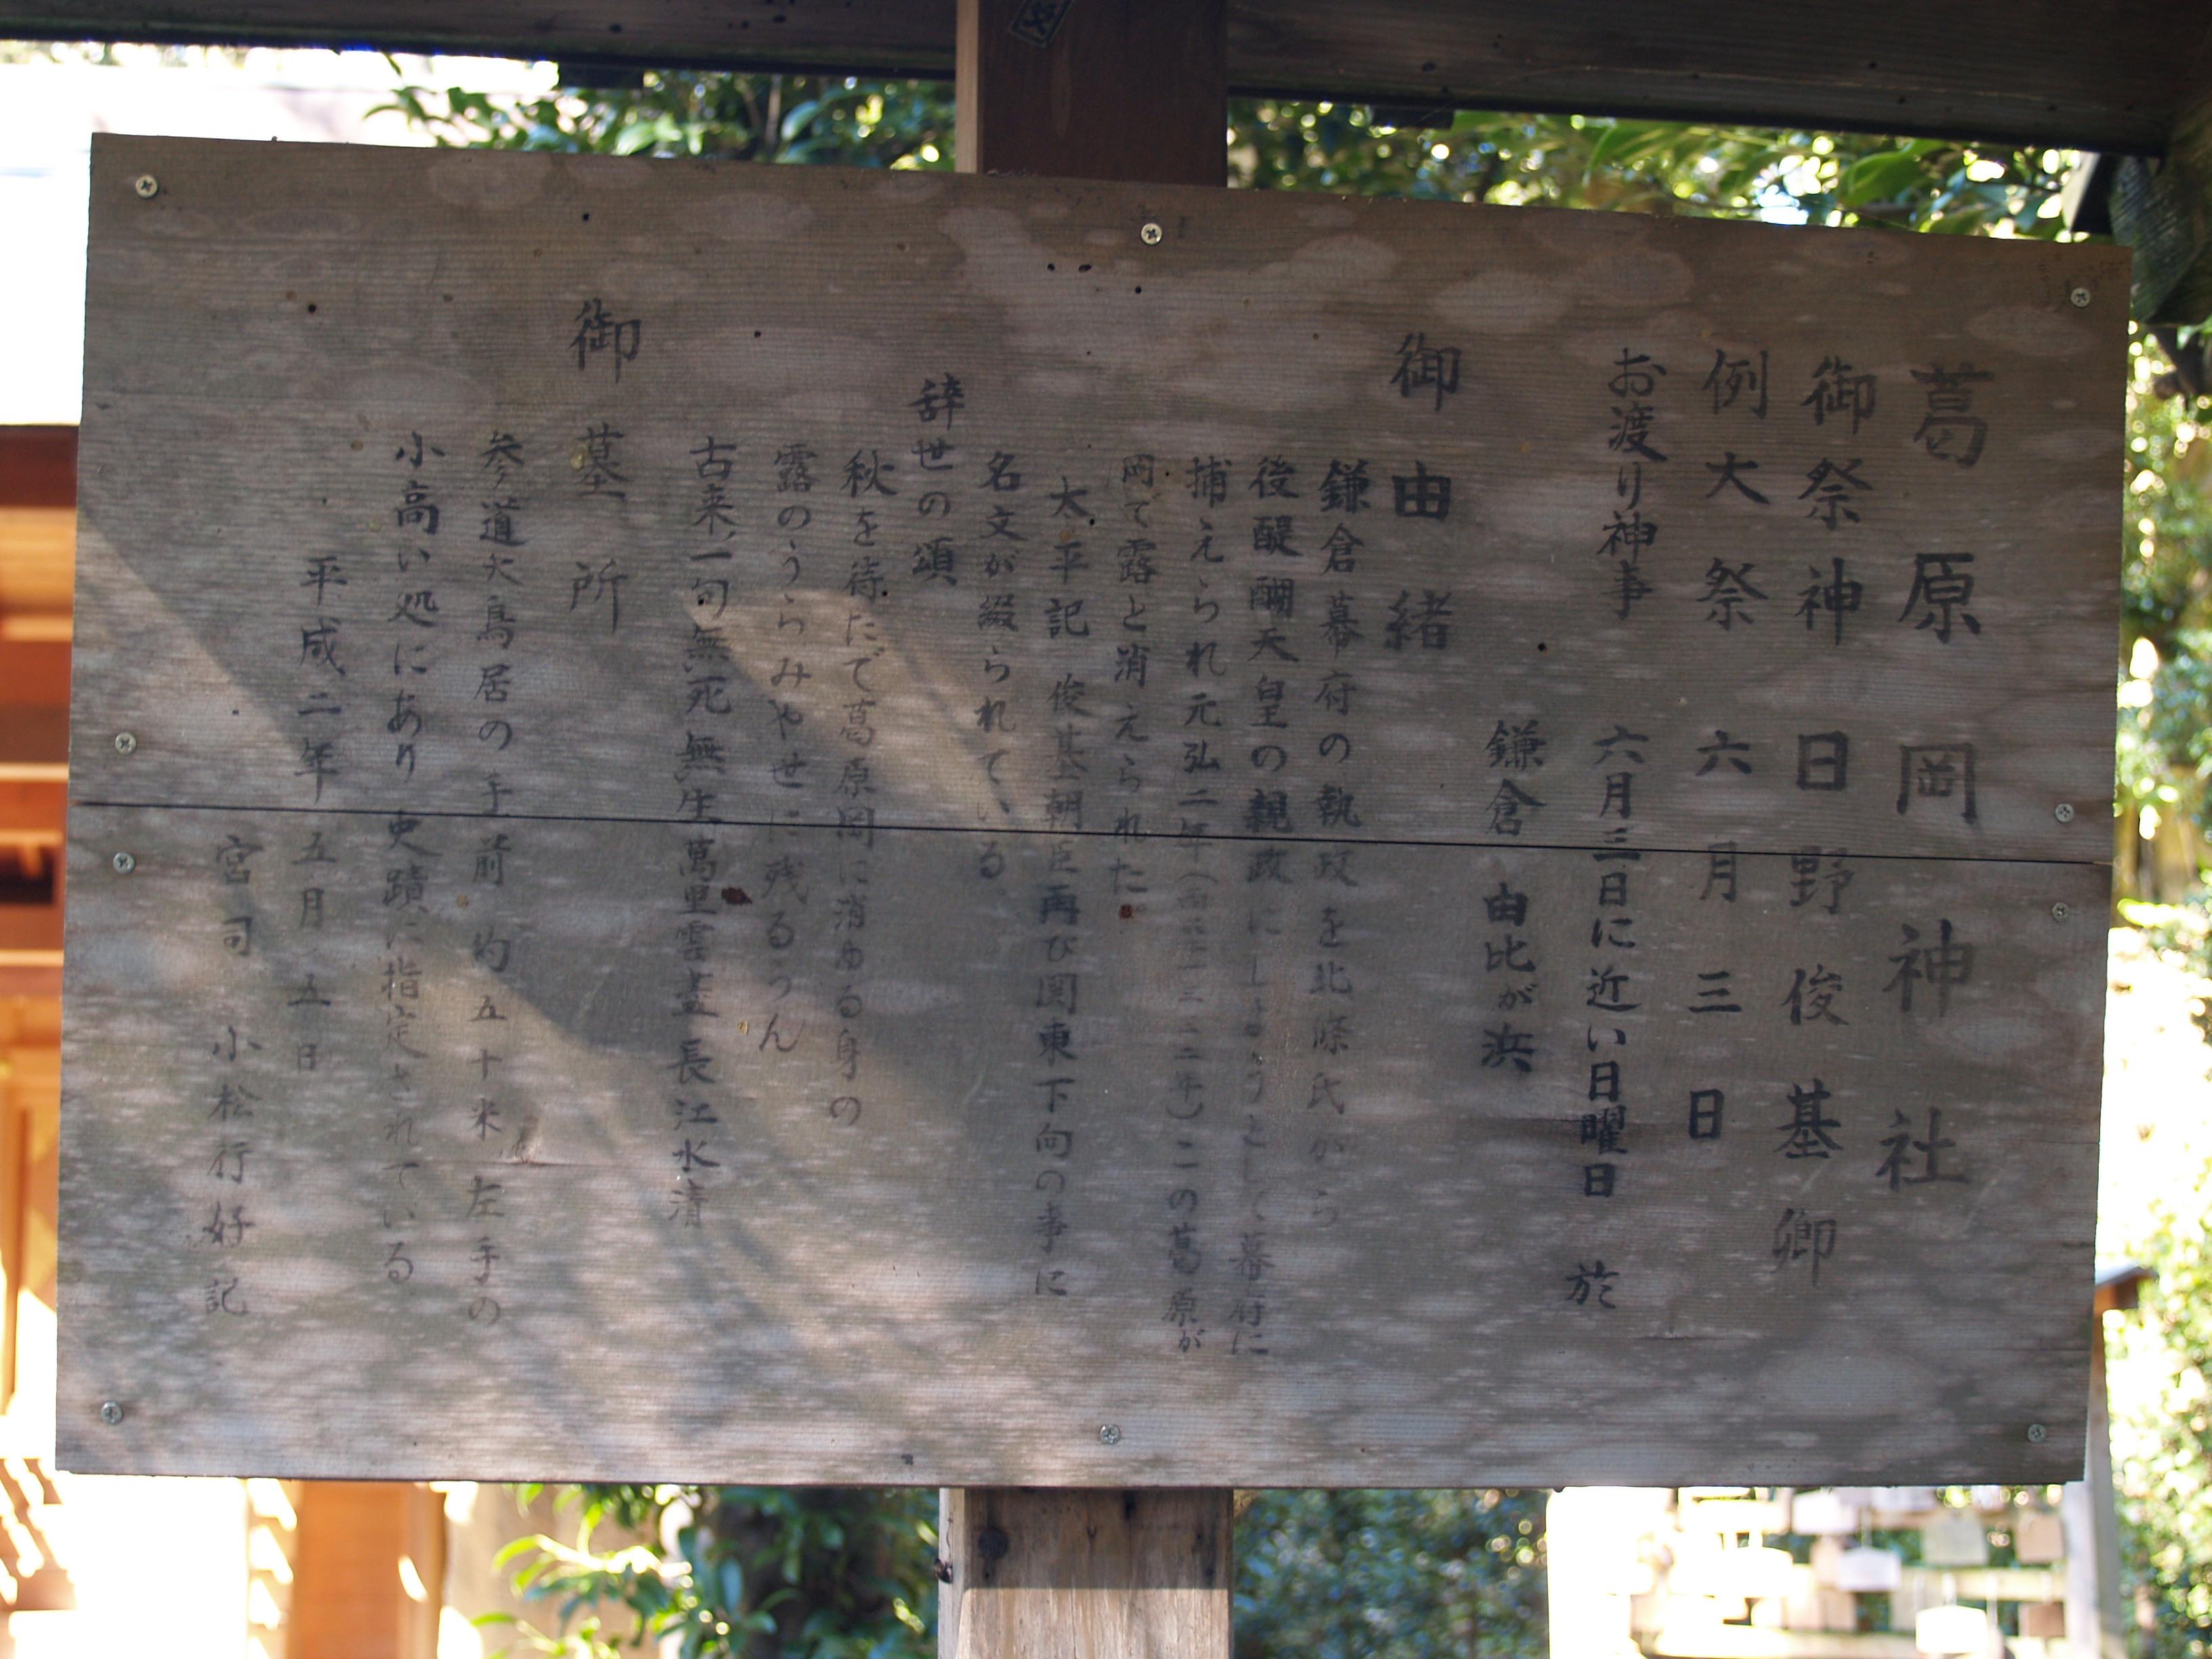 葛原岡神社
御祭神 日野俊基卿
例大祭 六月三日
お渡り神事 六月三日に近い日曜日 於
鎌倉 由比が浜
御由緒
鎌倉幕府の執政を北條氏から
後醍醐天皇の親政にしようとして幕府に
捕えられ元弘二年(西暦一三三二年)この葛原が
岡で露と消えられた。
太平記 俊基朝臣再び関東下向の事に
名文が綴られている
辞世の頌
秋を待たで葛原岡に消ゆる身の
露のうらみやせに残るらん
古来一句無死無生萬里雲盡長江水清
御墓所
参道大鳥居の手前約五十米左手の
小高い処にあり史蹟に指定されている
平成二年五月五日
宮司 小松行好記